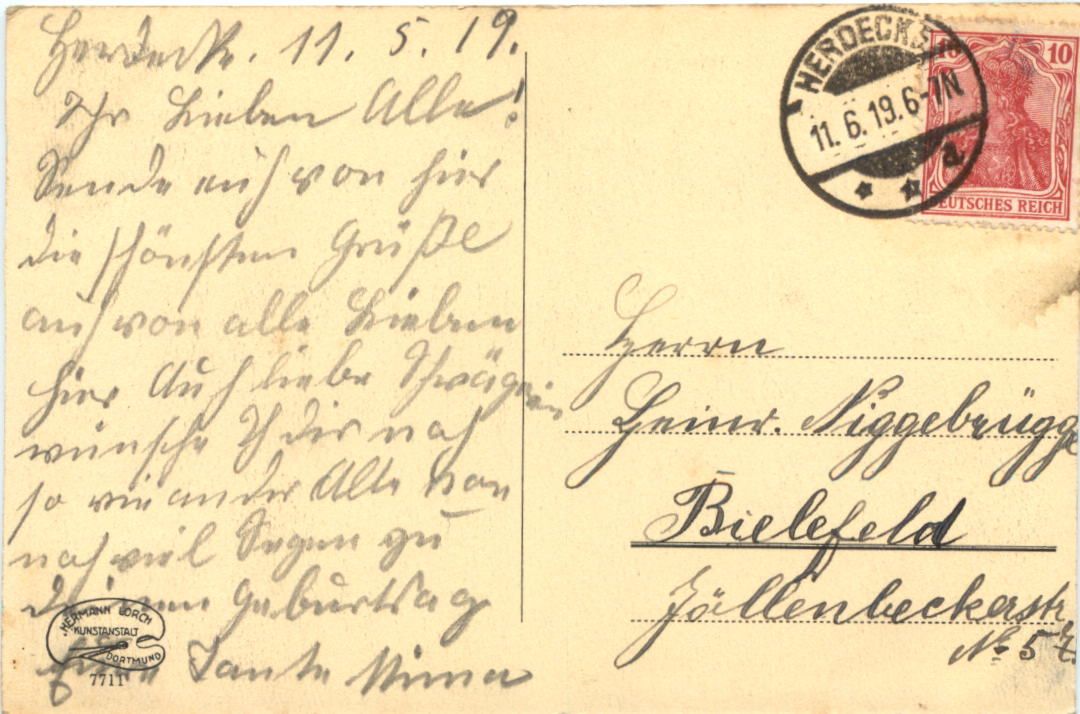 Herdecke. 11. 5. 19.
Ihr Lieben Alle!
Sende euch von hier
die schönsten Grüße
auch von alle Lieben
hier Auch liebe Schwägerin
wünsche Ich dir noch
so wie an der Alte von
noch viel Segen zu
deinem Geburtstag
Eure Tante Minna
HERMANN LORCH
KUNSTANSTALT
DORTMUND
7711
HERDECKE
11. 6. 19. 6-7N.
a.
10 10
DEUTSCHES REICH
Herrn
Heinr. Niggebrügge
Bielefeld
Jöllenbeckerstr
No 57.